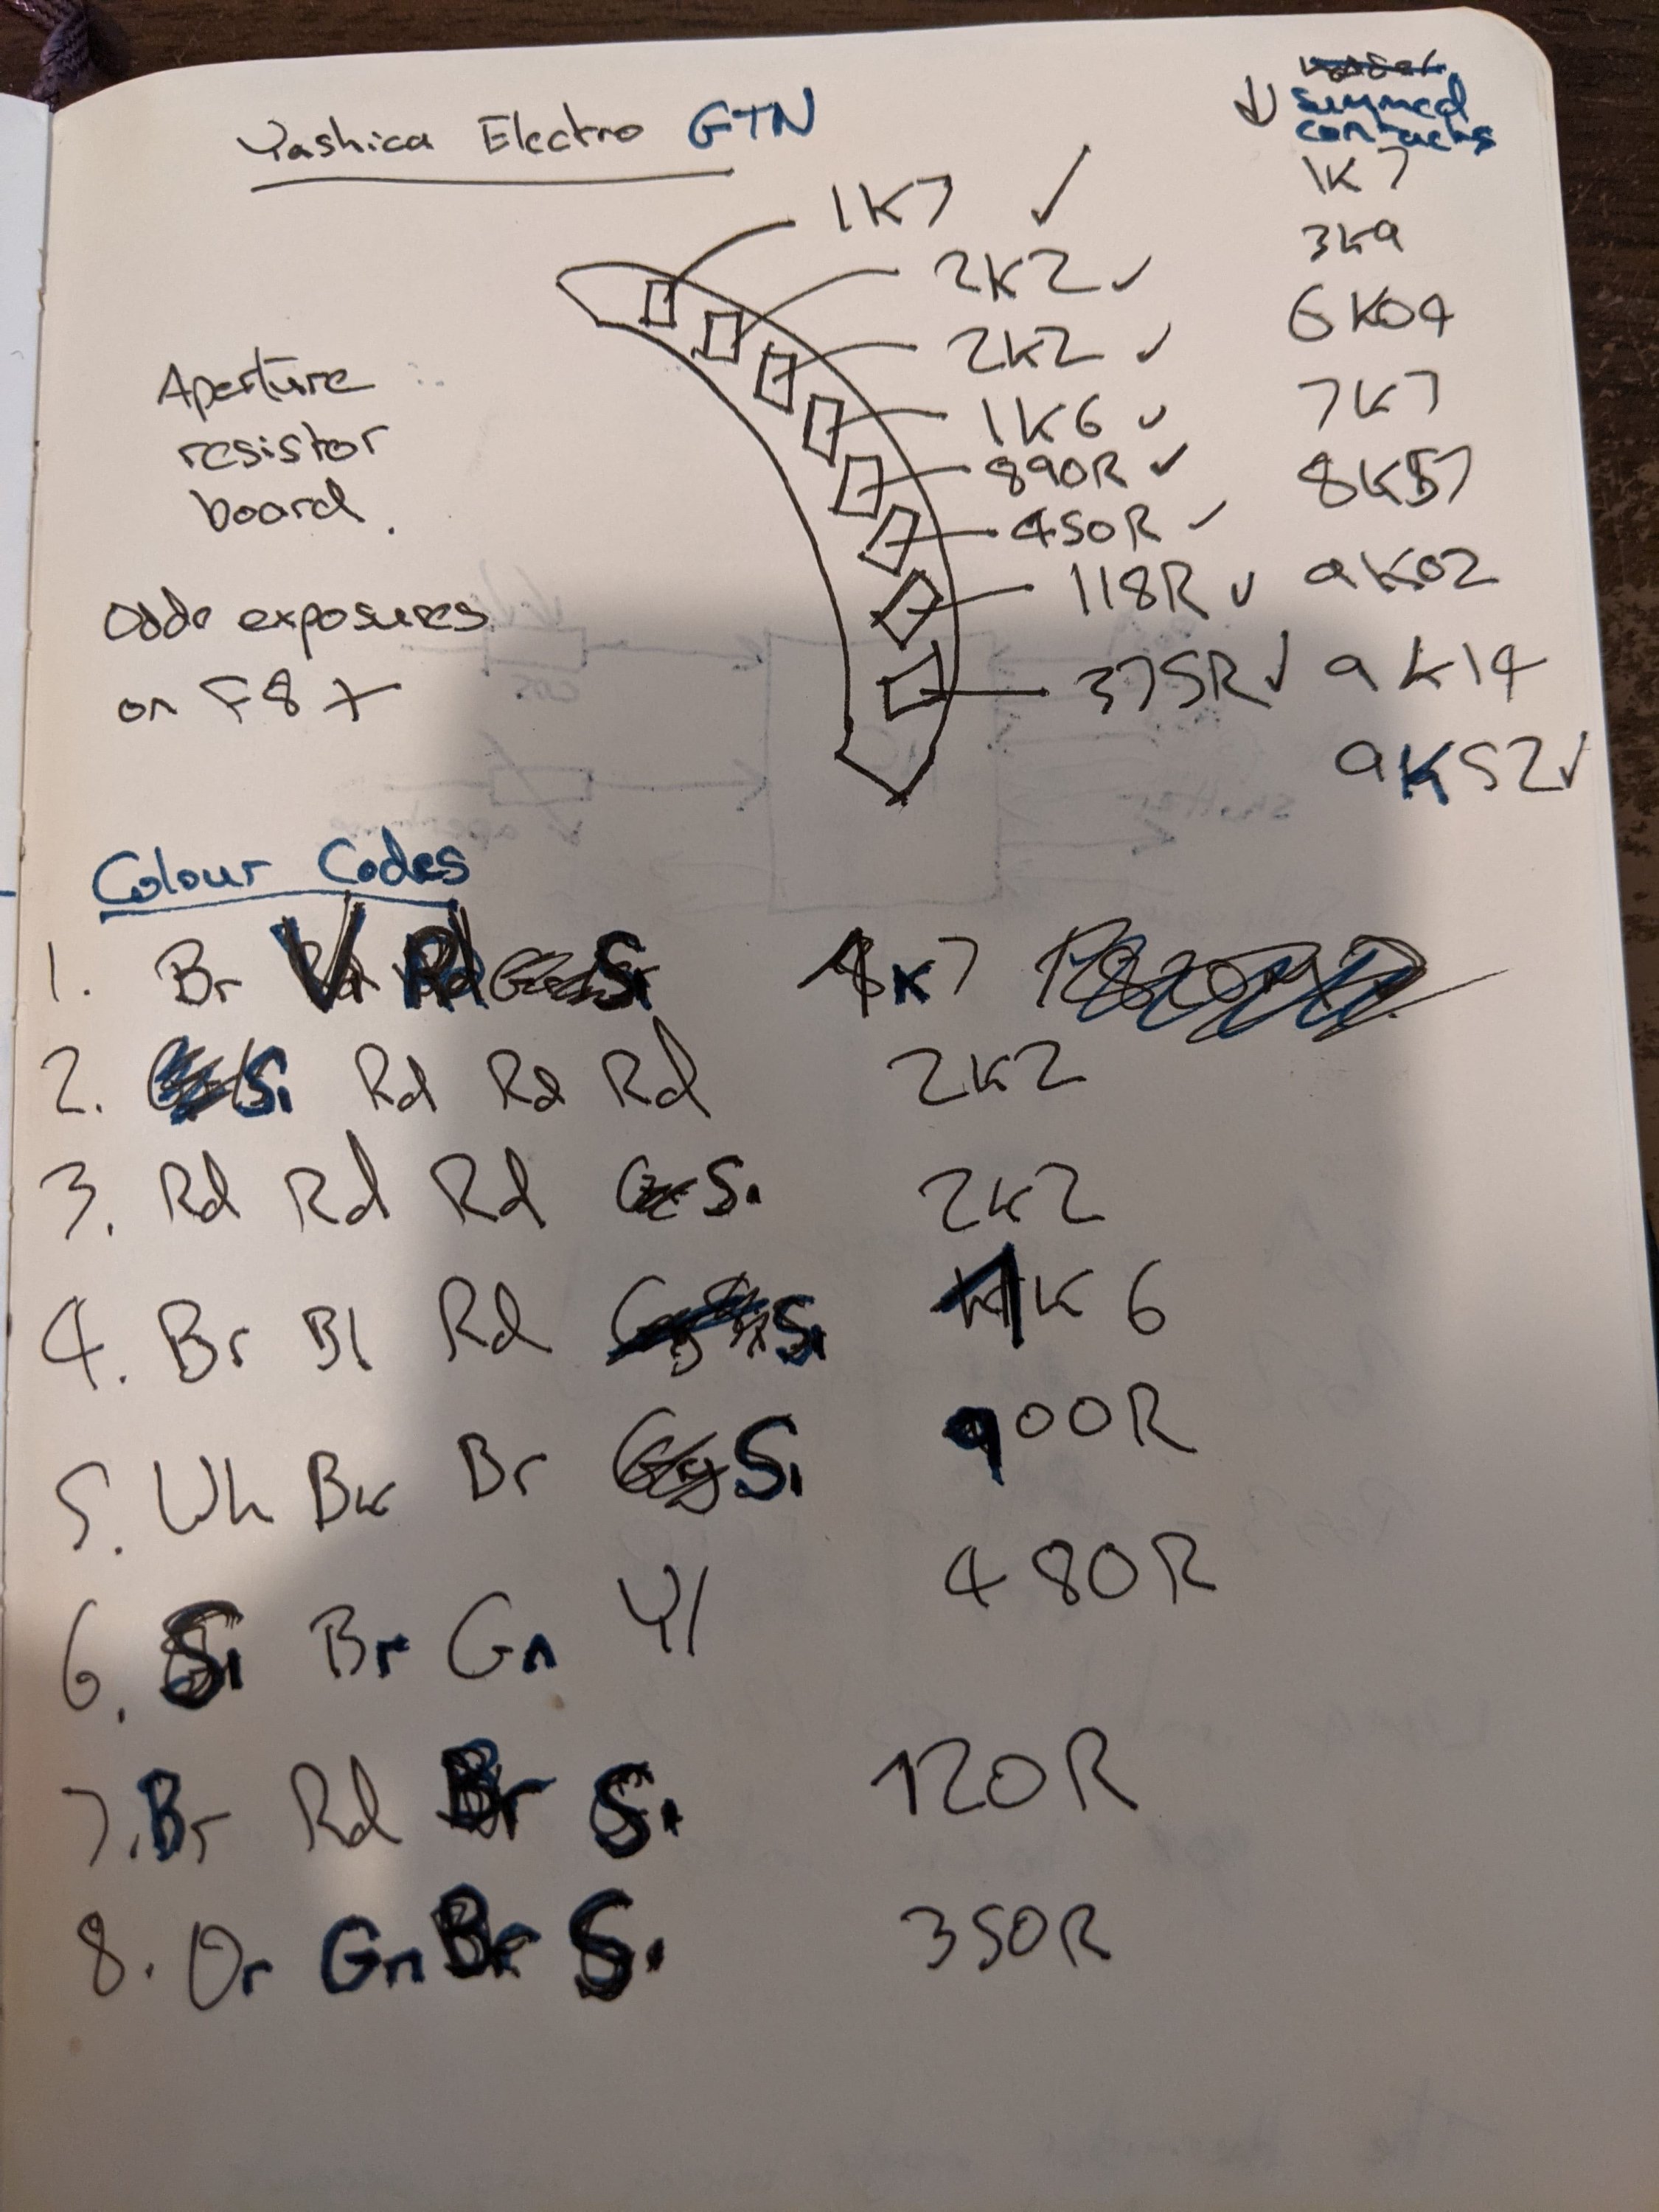 Yashica Electro GTN
↓ summed
contacts
1K7 ✓
1K7
2K2 ✓
3K9
2K2 ✓
6K04
1K6 ✓
7K7
890R ✓
8K57
450R ✓
9K02
118R ✓
9K14
375R ✓
9K52 ✓
Aperture
resistor
board.
Odde exposures
on F8 +
Colour Codes
1. Br V Rd Si K7
2. Si Rd Rd Rd 2K2
3. Rd Rd Rd Si 2K2
4. Br Bl Rd Si 1K6
5. Wh Bk Br Si 900R
6. Si Br Gn Yl 480R
7. Br Rd Br Si 120R
8. Or Gn Br Si 350R